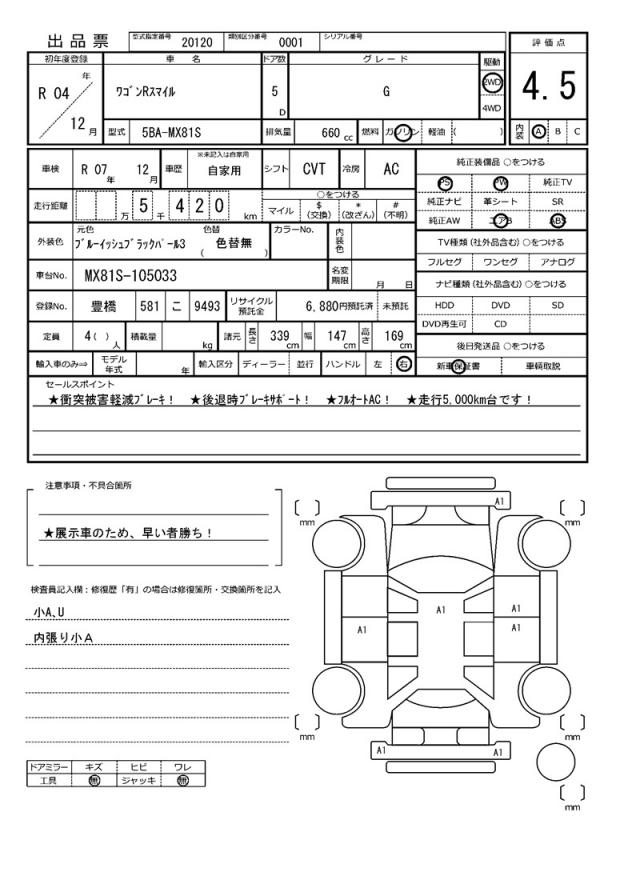 出品票 型式指定番号 20120 類別区分番号 0001 シリアル番号
評価点
4.5
内装 A B C
初年度登録 車名 ドア数 グレード 駆動
R 04 年 12 月 ワゴンRスマイル 5 D G 2WD 4WD
型式 5BA-MX81S 排気量 660 cc 燃料 ガソリン 軽油 ( )
車検 R 07 年 12 月 車歴 ※未記入は自家用 自家用 シフト CVT 冷房 AC
走行距離 万 5 千 4 2 0 km ○をつける
マイル $ (交換) * (改ざん) # (不明)
外装色 元色 ブルーイッシュブラックパール3 色替 ( 色替無 ) カラーNo. 内装色
車台No. MX81S-105033 名変期限 月 日
登録No. 豊橋 581 こ 9493 リサイクル預託金 6,880円預託済 未預託
定員 4 ( ) 人 積載量 kg 諸元 長さ 339 cm 幅 147 cm 高さ 169 cm
輸入車のみ⇒ モデル年式 年 輸入区分 ディーラー 並行 ハンドル 左 右
純正装備品 ○をつける
PS PW 純正TV
純正ナビ 革シート SR
純正AW エアB ABS
TV種類(社外品含む)○をつける
フルセグ ワンセグ アナログ
ナビ種類(社外品含む)○をつける
HDD DVD SD
DVD再生可 CD
後日発送品 ○をつける
新車保証書 車輌取説
セールスポイント
★衝突被害軽減ブレーキ! ★後退時ブレーキサポート! ★フルオートAC! ★走行5,000km台です!
注意事項・不具合箇所
★展示車のため、早い者勝ち!
検査員記入欄:修復歴「有」の場合は修復箇所・交換箇所を記入
小A、U
内張り小A
ドアミラー キズ ヒビ ワレ
工具 無 ジャッキ 無
A1
mm mm
A1 A1
A1 A1
mm mm
A1 A1
mm